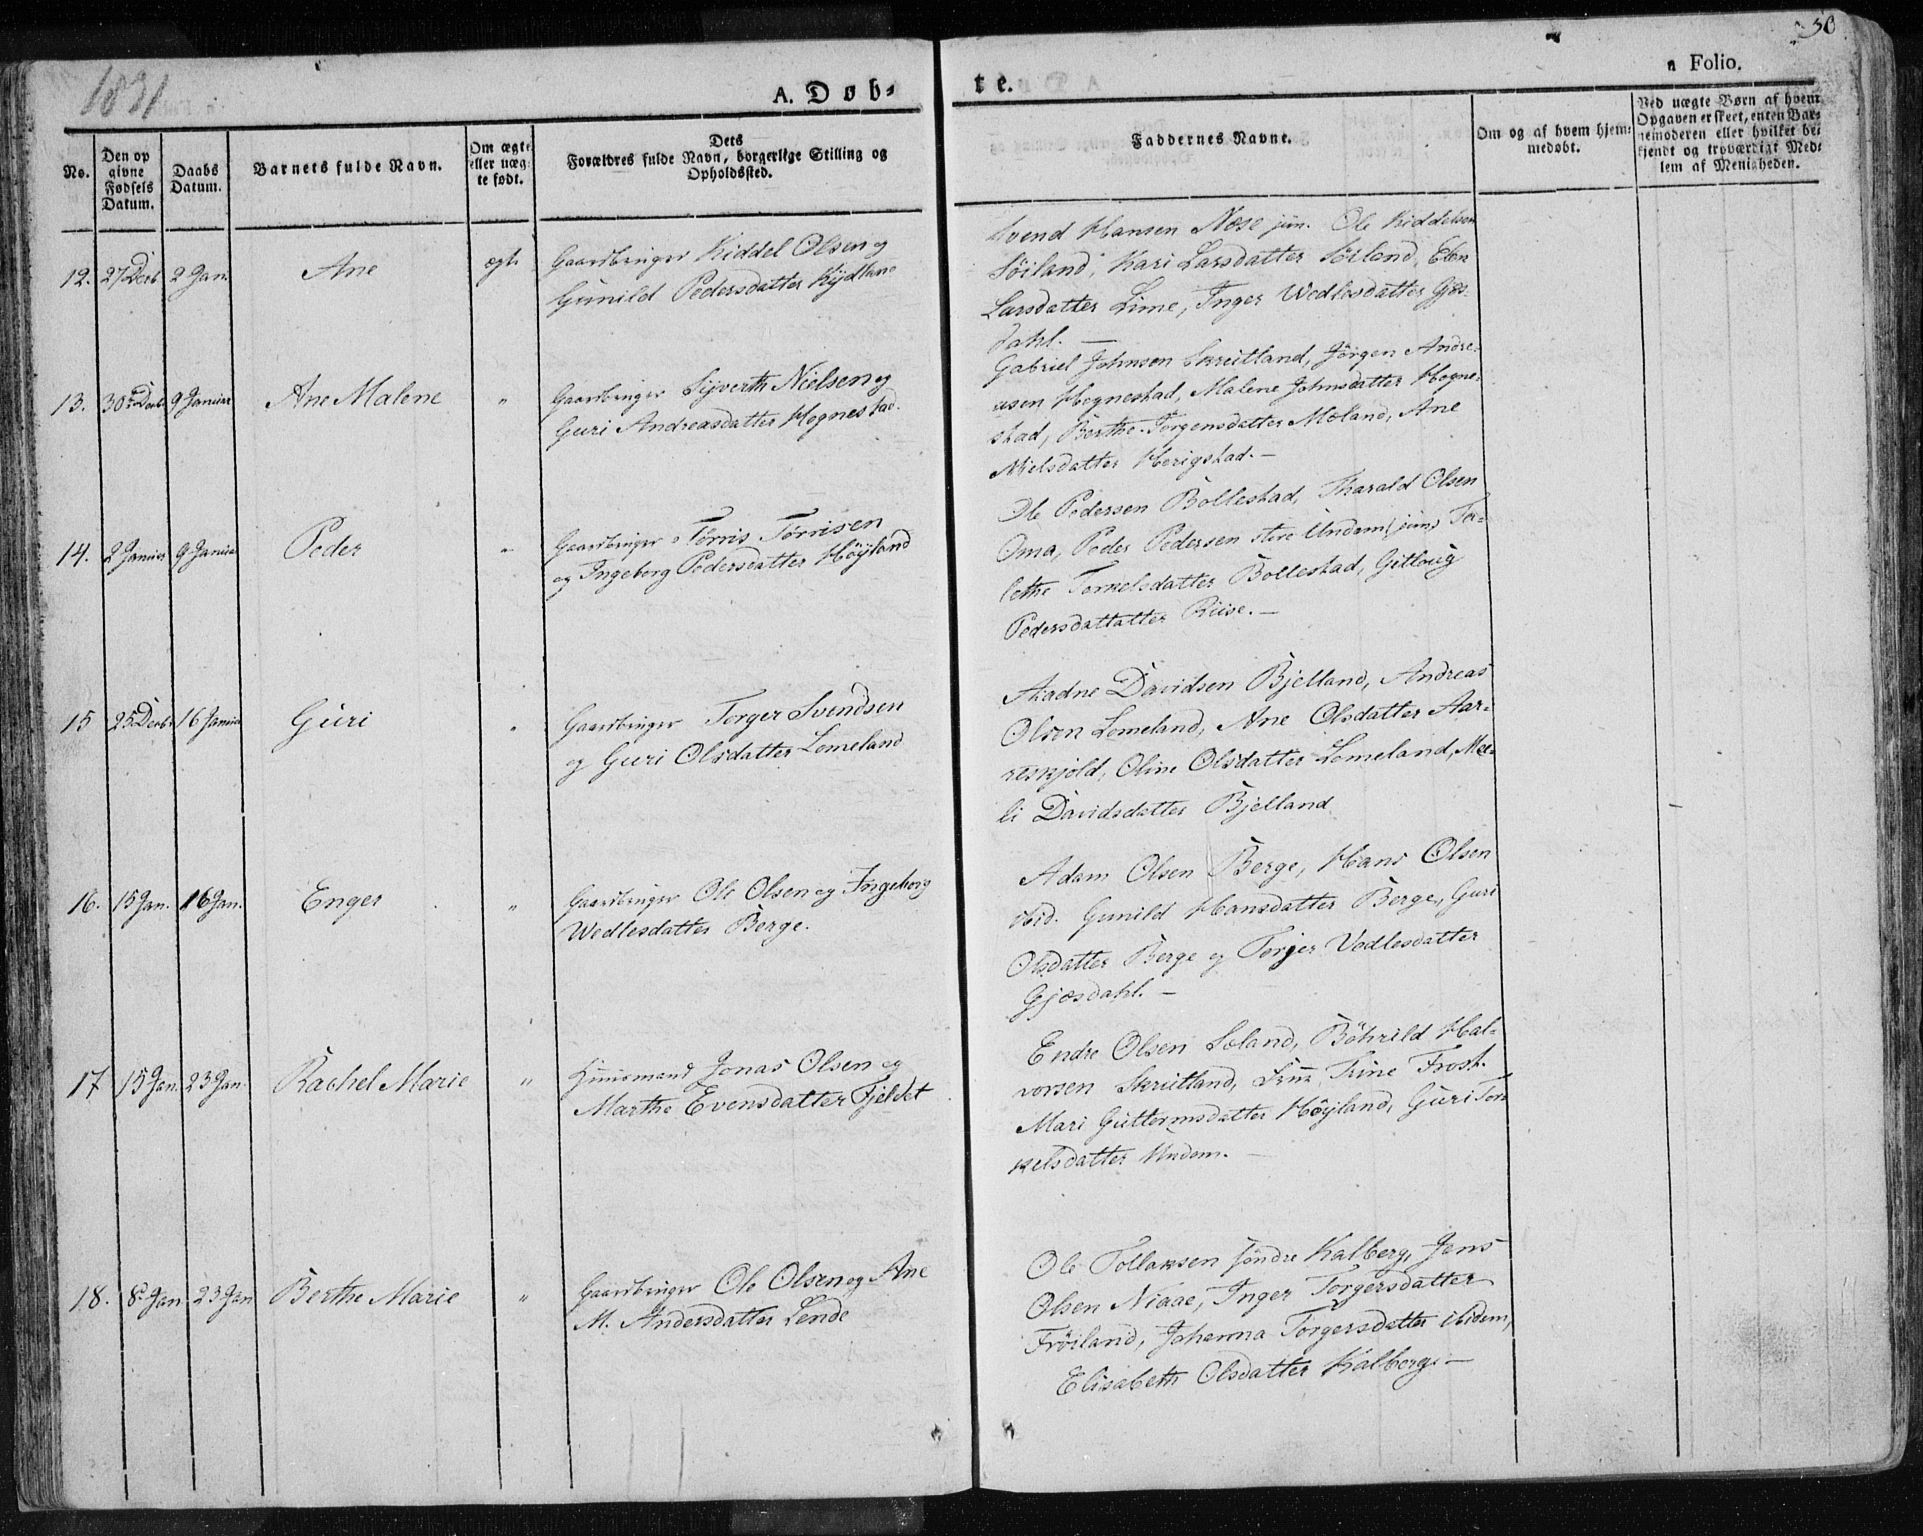 1831
A. Døb-
te.
30
Folio.
No.
Den op
givne
Fødsels
Datum.
Daabs
Datum.
Barnets fulde Navn.
Om ægte
eller uæg-
te født.
Dets
Forældres fulde Navn, borgerlige Stilling og
Opholdssted.
Faddernes Navne.
Om og af hvem hjem-
medøbt.
Ved uægte Børn af hvem
Opgaven er skeet, enten Bar-
nemoderen eller hvilket be-
kjendt og troværdigt Med-
lem af Menigheden.
12. 27 Decb 2 Jan. Ane ægt. Gaardbruger Kiddel Olsen og
Gunild Pedersdatter Kydland
Svend Hansen Næse jun. Ole Kiddelsen
Søiland, Kari Larsdatter Sørland, Elen
Larsdatter Lime, Inger Wedlesdatter Gjæs-
dahl. —
13. 30 Decb 9 Januar Ane Malene " Gaardbruger Syverth Nielsen og
Guri Andreasdatter Hognestad.
Gabriel Johnsen Skreitland, Jørgen Andre-
asen Hognestad, Malene Johnsdatter Hogne-
stad, Berthe Torgensdatter Meland, Ane
Nielsdatter Herigstad. —
14. 2 Januar 9 Januar Peder " Gaardbruger Tørris Tørrisen
og Ingeborg Pedersdatter Høyland
Ole Pedersen Bollestad, Tharald Olsen
Oma, Peder Pedersen store Undem jun, Tor-
lethe Torkelsdatter Bollestad, Gitloug
Pedersdattatter Riise. —
15 25 Decbr 16 Januar Guri " Gaardbruger Torger Svendsen
og Guri Olsdatter Lomeland
Aadne Davidsen Bjelland, Andreas
Olsen Lomeland, Ane Olsdatter Aar-
reskjold, Oline Olsdatter Lomeland, Mal-
li Davidsdatter Bjelland
16. 15 Jan. 16 Jan. Enger " Gaardbruger Ole Olsen og Ingeborg
Wedlesdatter Berge.
Adam Olsen Berge, Hans Olsen
ibid. Gunild Hansdatter Berge, Guri
Olsdatter Berge og Torjer Vedlesdatter
Gjæsdahl. —
17 15 Jan. 23 Jan. Rachel Marie " Huusmand Jonas Olsen og
Marthe Evensdatter Fjeldet
Endre Olsen Soland, Böhrild Hal-
vorsen Skrutland, Trine Frost.
Mari Guttormsdatter Høyland, Guri Tor-
kelsdatter Undem. —
18. 8 Jan. 23 Jan Berthe Marie " Gaardbruger Ole Olsen og Ane
M. Andersdatter Lende
Ole Tollaksen søndre Kalberg, Jens
Olsen Niaae, Inger Torgersdatter
Frøiland, Johanna Torgersdatter ibidem,
Elisabeth Olsdatter Kalberg. —